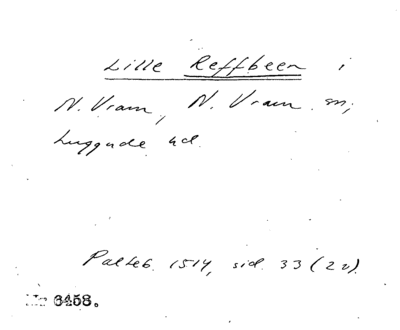 Lille Reffbeen i
N. Vram, N. Vram sn;
Luggude hd.
Palteb. 1514, sid. 33 (22).
Nr 6458.